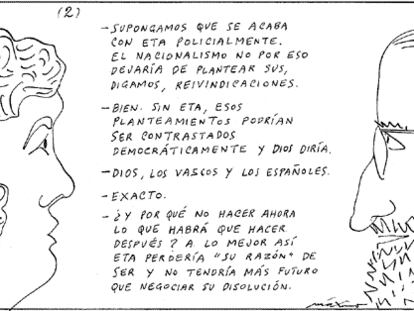 (2)
- SUPONGAMOS QUE SE ACABA
CON ETA POLICIALMENTE.
EL NACIONALISMO NO POR ESO
DEJARÍA DE PLANTEAR SUS,
DIGAMOS, REIVINDICACIONES.
- BIEN. SIN ETA, ESOS
PLANTEAMIENTOS PODRÍAN
SER CONTRASTADOS
DEMOCRÁTICAMENTE Y DIOS DIRÍA.
- DIOS, LOS VASCOS Y LOS ESPAÑOLES.
- EXACTO.
- ¿Y POR QUÉ NO HACER AHORA
LO QUE HABRÁ QUE HACER
DESPUÉS? A LO MEJOR ASÍ
ETA PERDERÍA "SU RAZÓN" DE
SER Y NO TENDRÍA MÁS FUTURO
QUE NEGOCIAR SU DISOLUCIÓN.
máximo